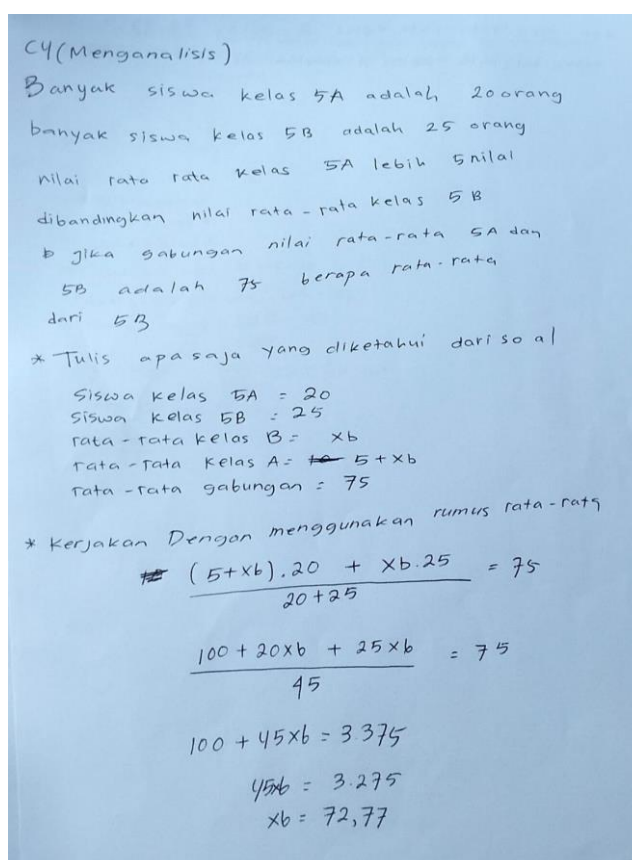 C4 (Menganalisis)
Banyak siswa kelas 5A adalah 20 orang
banyak siswa kelas 5B adalah 25 orang
nilai rata rata kelas 5A lebih 5 nilai
dibandingkan nilai rata-rata kelas 5B
b jika gabungan nilai rata-rata 5A dan
5B adalah 75 berapa rata-rata
dari 5B
* Tulis apa saja yang diketahui dari soal
Siswa kelas 5A = 20
Siswa kelas 5B = 25
rata-rata kelas B = xb
rata-rata kelas A = 5 + xb
rata-rata gabungan = 75
* Kerjakan Dengan menggunakan rumus rata-rata
(5+xb).20 + xb.25 = 75
20+25
100 + 20xb + 25xb = 75
45
100 + 45xb = 3.375
45xb = 3.275
xb = 72,77